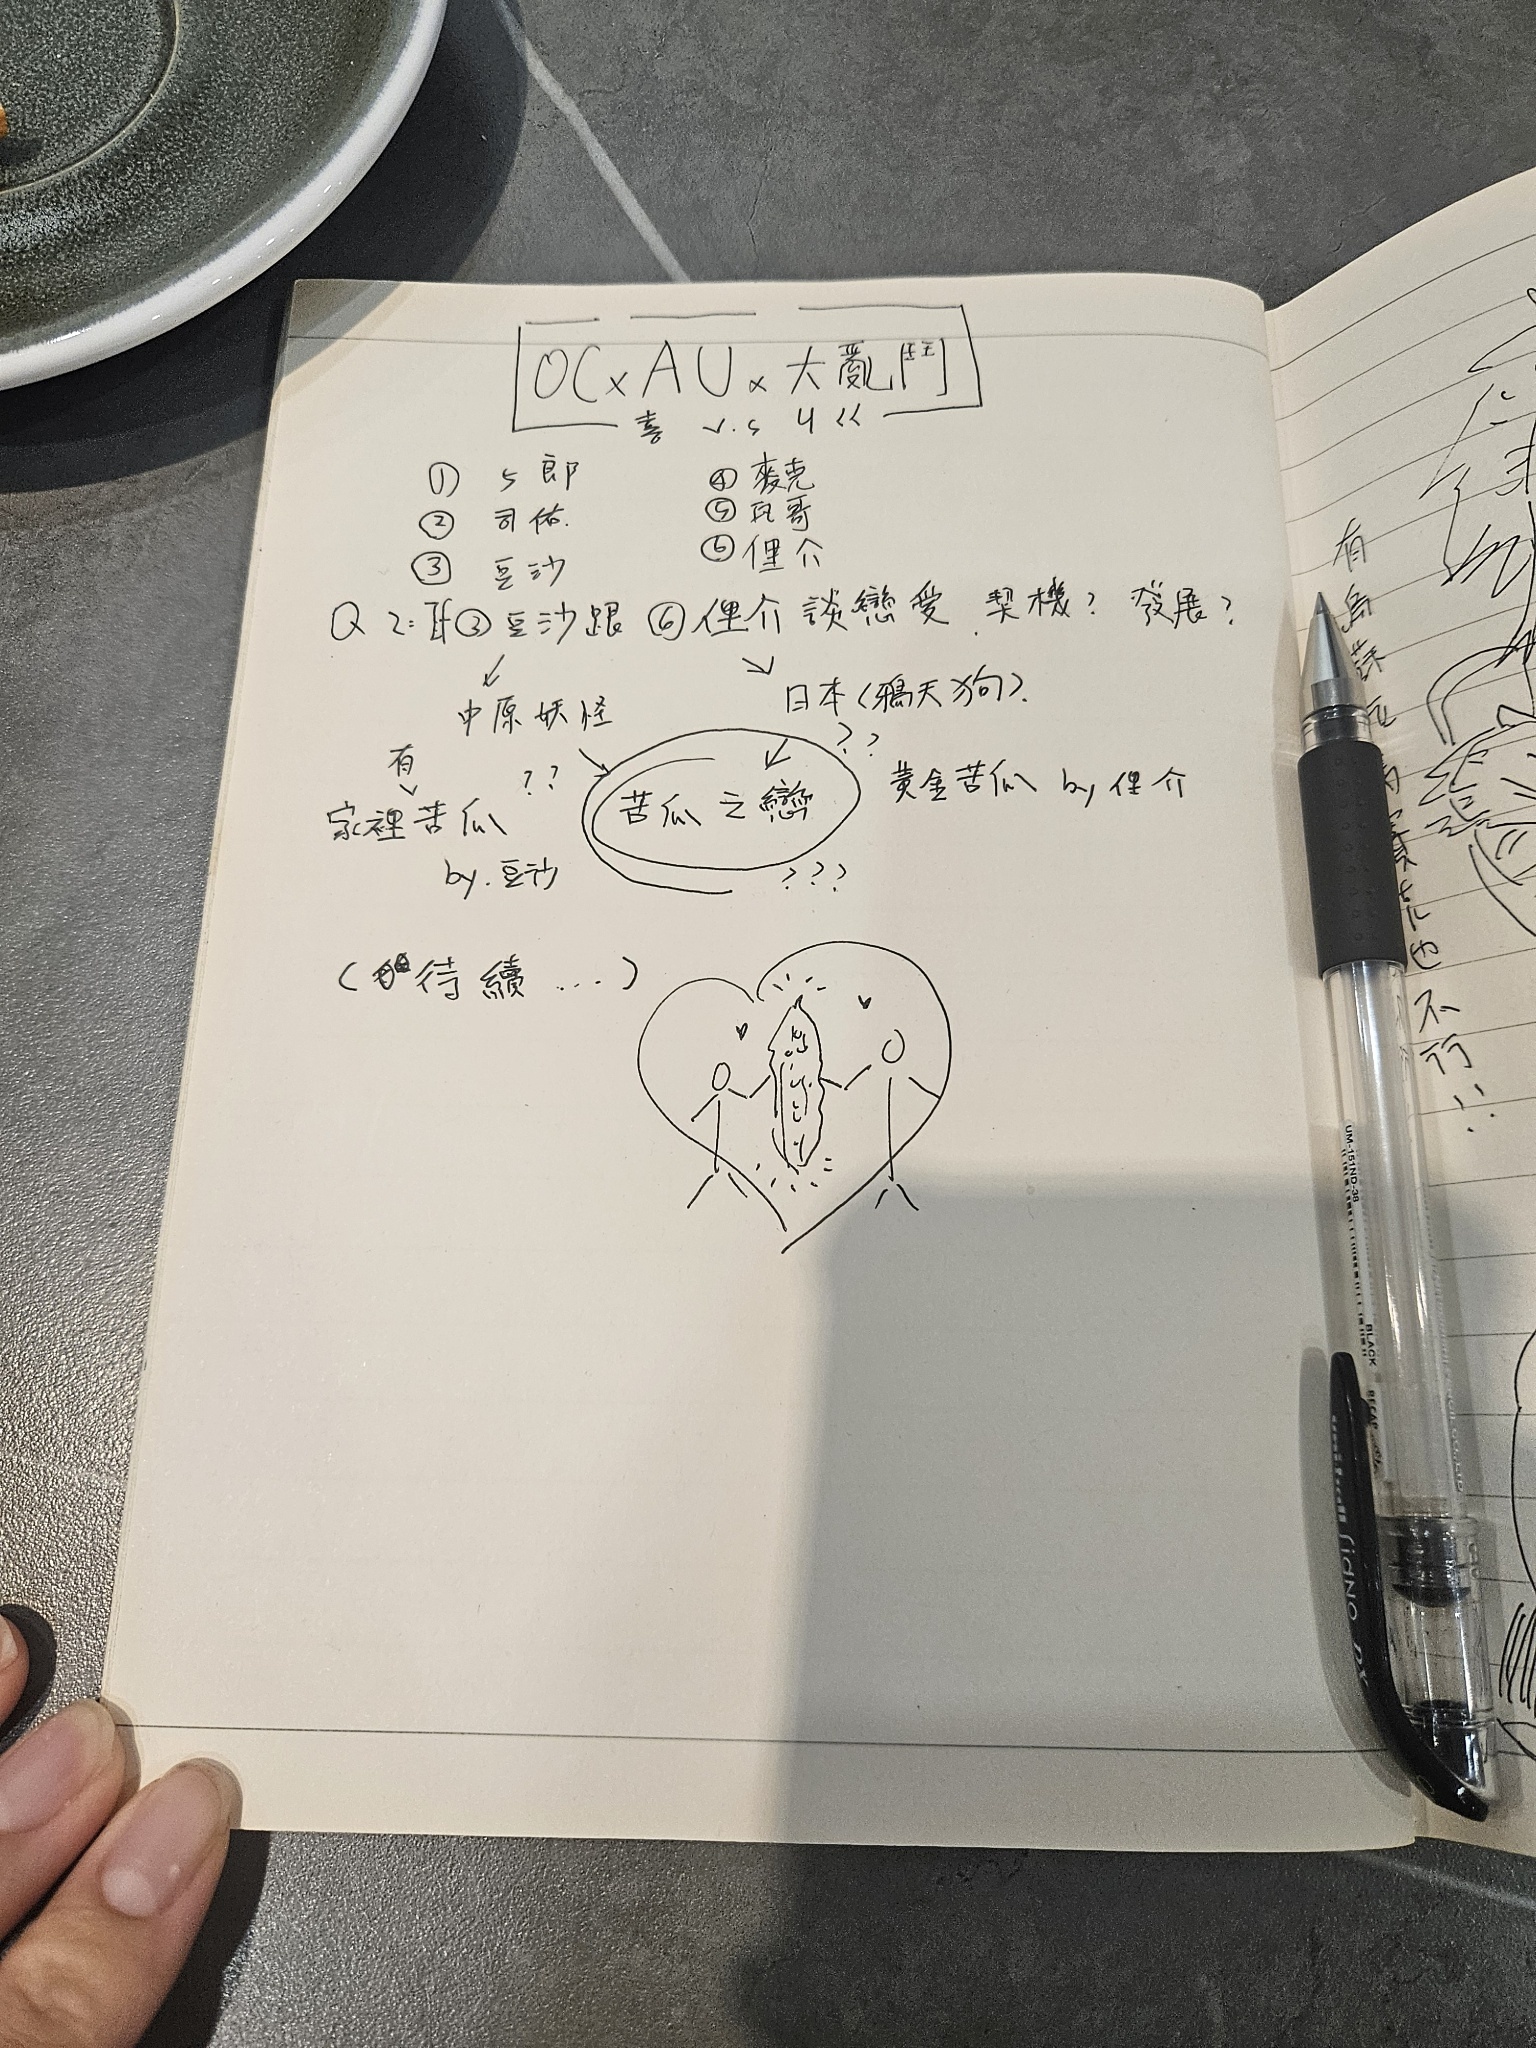 OC x AU x 大亂鬥
喜 v.s ㄐㄍ
① ㄣ郎
② 司佑
③ 豆沙
④ 麥克
⑤ 哥
⑥ 俚介
Q2: ③豆沙跟 ⑥俚介談戀愛 契機? 發展?
中原妖怪
日本(鴉天狗).
有
家裡苦瓜
by. 豆沙
??
苦瓜之戀
??
黃金苦瓜 by 俚介
???
(待續...)
有島
也不行!!
UM-151ND-38
BLACK
uni-ball Signo DX